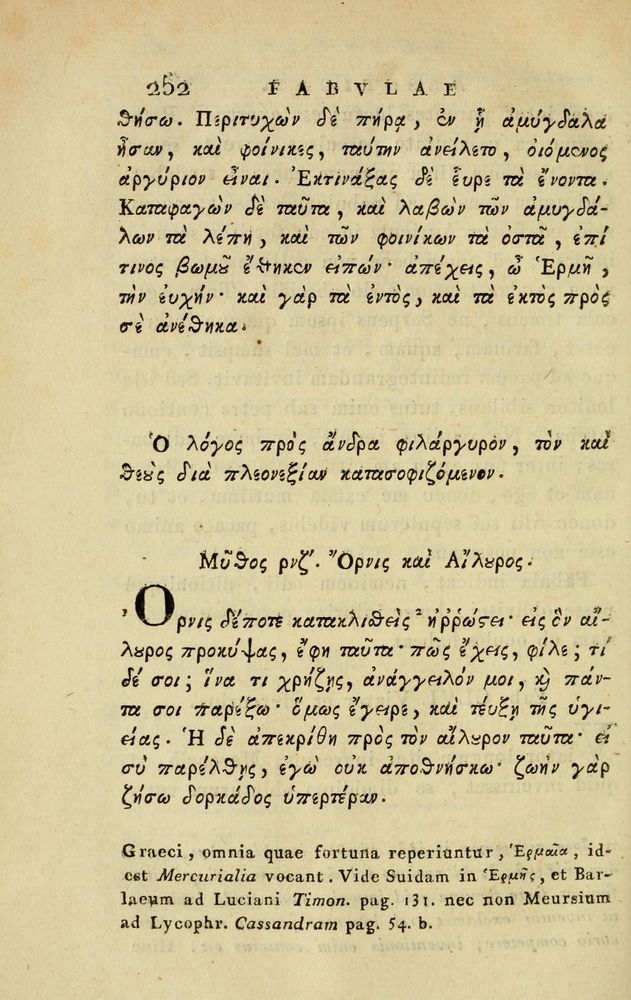 252 FABVLAE
θήσω. Περιτυχὼν δὲ πήρᾳ, ἐν ᾗ ἀμύγδαλα
ἦσαν, καὶ φοίνικες, ταύτην ἀνείλετο, οἰόμενος
ἀργύριον εἶναι. Ἐκτινάξας δὲ εὗρε τὰ ἔνοντα.
Καταφαγὼν δὲ ταῦτα, καὶ λαβὼν τῶν ἀμυγδά-
λων τὰ λέπη, καὶ τῶν φοινίκων τὰ ὀστᾶ, ἐπί
τινος βωμοῦ ἔθηκεν εἰπών· ἀπέχεις, ὦ Ἑρμῆ,
τὴν εὐχήν· καὶ γὰρ τὰ ἐντὸς, καὶ τὰ ἐκτὸς πρὸς
σὲ ἀνέθηκα.
Ὁ λόγος πρὸς ἄνδρα φιλάργυρον, τὸν καὶ
θεοὺς διὰ πλεονεξίαν κατασοφιζόμενον.
Μῦθος ρνζʹ. Ὄρνις καὶ Αἴλουρος.
Ὄρνις δέποτε κατακλιθεὶς ἠῤῥώστει· εἰς ὃν αἴ-
λουρος προκύψας, ἔφη ταῦτα· πῶς ἔχεις, φίλε; τί
δέ σοι; ἵνα τι χρῄζῃς, ἀνάγγειλόν μοι, καὶ πάν-
τα σοι παρέξω· ὅμως ἔγειρε, καὶ τεύξῃ τῆς ὑγι-
είας. Ἡ δὲ ἀπεκρίθη πρὸς τὸν αἴλουρον ταῦτα· εἰ
σὺ παρέλθῃς, ἐγὼ οὐκ ἀποθνήσκω· ζωὴν γὰρ
ζήσω δορκάδος ὑπερτέραν.
Graeci, omnia quae fortuna reperiuntur, Ἑρμαῖα, id-
est Mercurialia vocant. Vide Suidam in Ἑρμῆς, et Bar-
laeum ad Luciani Timon. pag. 131. nec non Meursium
ad Lycophr. Cassandram pag. 54. b.